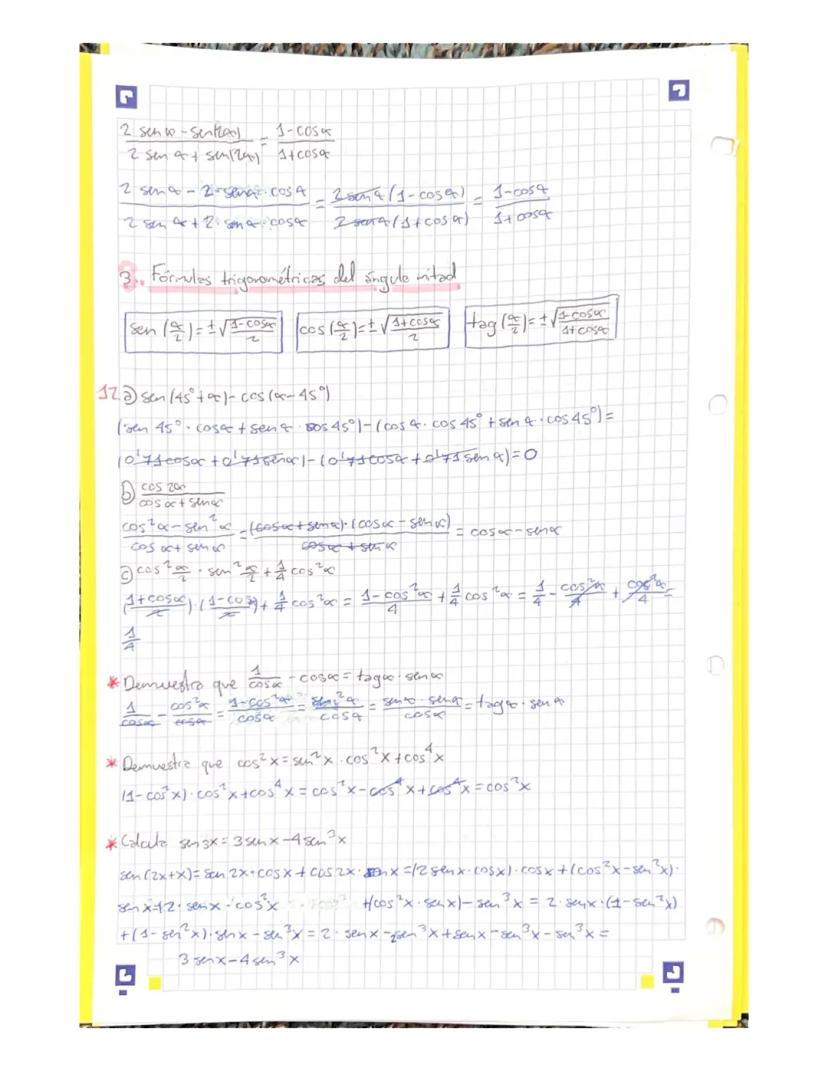 2 sen α - sen(2α) / 2 sen α + sen(2α) = 1-cosα / 1+cosα
2 senα - 2·senα·cosα / 2 senα + 2·senα·cosα = 2senα(1-cosα) / 2senα(1+cosα) = 1-cosα / 1+cosα
3. Fórmulas trigonométricas del ángulo mitad
sen(α/2)=±√(1-cosα / 2) cos(α/2)=±√(1+cosα / 2) tag(α/2)=±√(1-cosα / 1+cosα)
12 a) sen(45°+α)-cos(α-45°)
(sen 45°·cosα+senα·cos45°)-(cosα·cos45°+senα·cos45°)=
(0'71cosα+0'71senα)-(0'71cosα+0'71senα)=0
b) cos2α / cosα+senα
cos²α-sen²α / cosα+senα = (cosα+senα)·(cosα-senα) / cosα+senα = cosα-senα
c) cos²α/2·sen²α/2+1/4 cos²α
(1+cosα / 2)·(1-cosα / 2)+1/4 cos²α = 1-cos²α / 4 + 1/4 cos²α = 1/4 - cos²α/4 + cos²α/4 =
1/4
* Demuestra que 1/cosα - cosα = tagα·senα
1/cosα - cos²α/cosα = 1-cos²α / cosα = sen²α / cosα = senα·senα / cosα = tagα·senα
* Demuestra que cos²x=sen²x·cos²x+cos⁴x
(1-cos²x)·cos²x+cos⁴x=cos²x-cos⁴x+cos⁴x=cos²x
* Calcula sen3x=3senx-4sen³x
sen(2x+x)=sen2x·cosx+cos2x·senx=(2senx·cosx)·cosx+(cos²x-sen²x)·
senx=(2·senx·cos²x +(cos²x·senx)-sen³x = 2·senx·(1-sen²x)
+(1-sen²x)·senx-sen³x=2·senx-2sen³x+senx-sen³x-sen³x=
3senx-4sen³x